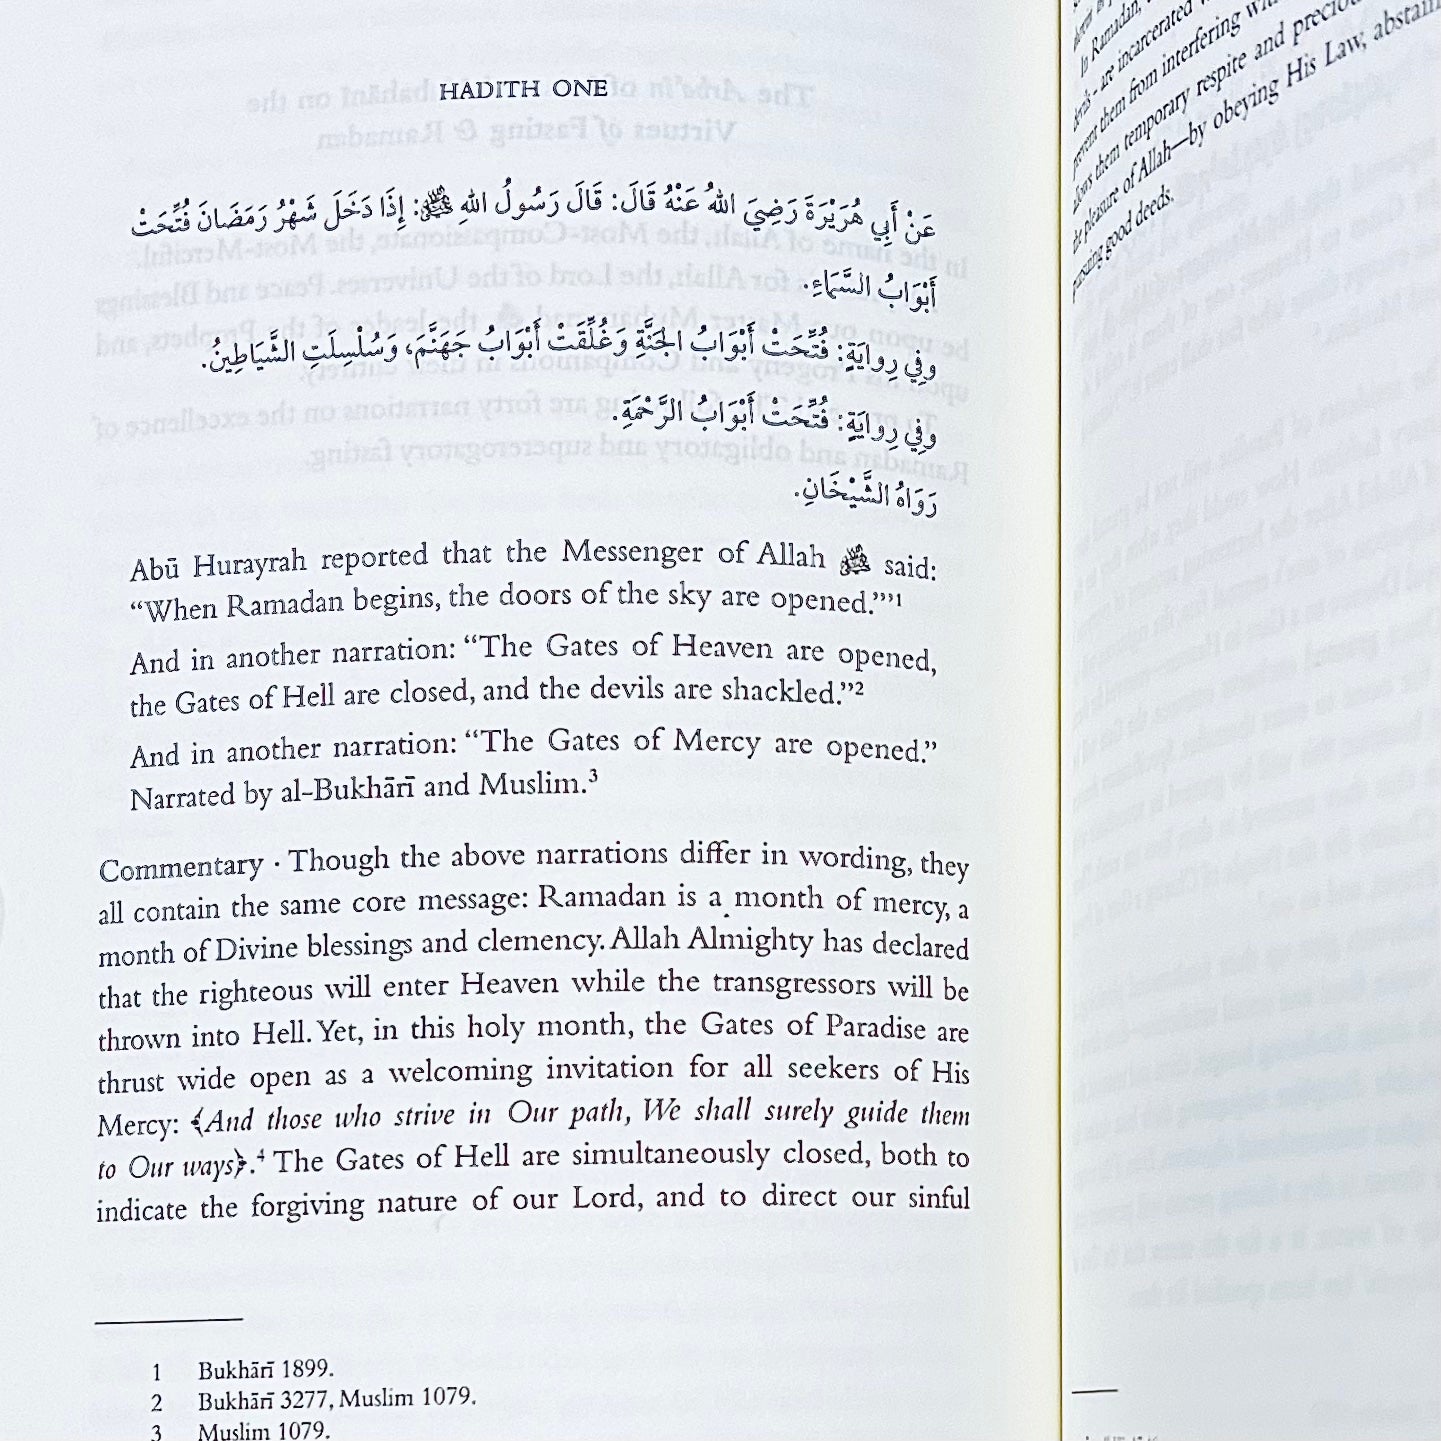 HADITH ONE
عَنْ أَبِي هُرَيْرَةَ رَضِيَ اللهُ عَنْهُ قَالَ: قَالَ رَسُولُ اللهِ ﷺ: إِذَا دَخَلَ شَهْرُ رَمَضَانَ فُتِّحَتْ
أَبْوَابُ السَّمَاءِ.
وفِي رِوايَةٍ: فُتِّحَتْ أَبْوَابُ الجَنَّةِ وَغُلِّقَتْ أَبْوَابُ جَهَنَّمَ، وَسُلْسِلَتِ الشَّيَاطِينُ.
وفِي رِوايَةٍ: فُتِّحَتْ أَبْوَابُ الرَّحْمَةِ.
رَوَاهُ الشَّيْخَانِ.
Abū Hurayrah reported that the Messenger of Allah ﷺ said:
“When Ramadan begins, the doors of the sky are opened.”’’1
And in another narration: “The Gates of Heaven are opened,
the Gates of Hell are closed, and the devils are shackled.”2
And in another narration: “The Gates of Mercy are opened.”
Narrated by al-Bukhārī and Muslim.3
Commentary · Though the above narrations differ in wording, they
all contain the same core message: Ramadan is a month of mercy, a
month of Divine blessings and clemency. Allah Almighty has declared
that the righteous will enter Heaven while the transgressors will be
thrown into Hell. Yet, in this holy month, the Gates of Paradise are
thrust wide open as a welcoming invitation for all seekers of His
Mercy: ﴾And those who strive in Our path, We shall surely guide them
to Our ways﴿.4 The Gates of Hell are simultaneously closed, both to
indicate the forgiving nature of our Lord, and to direct our sinful
1 Bukhārī 1899.
2 Bukhārī 3277, Muslim 1079.
3 Muslim 1079.
In Ramadan,
devils – are incarcerated
prevent them from interfering
allows them temporary respite and
the pleasure of Allah—by obeying His Law,
pursuing good deeds.